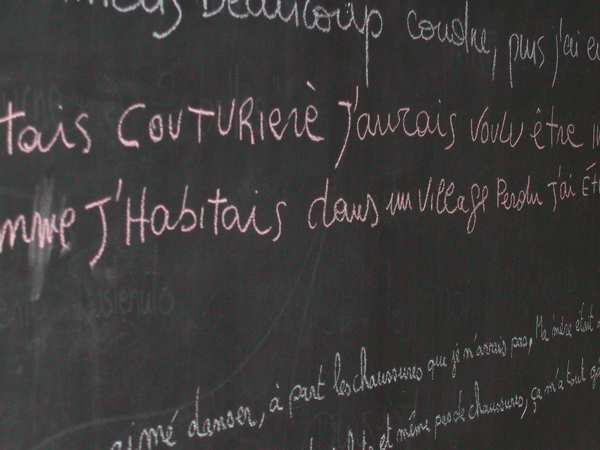 Beaucoup coudre, puis j'ai eu
tais COUTURIERÈ J'aurais voulu être in
mme J'Habitais dans un village Perdu J'ai Ét
aimé danser, à part les chaussures que je n'avais pas, Ma mère était
et même pas de chaussures, ça m'a tout